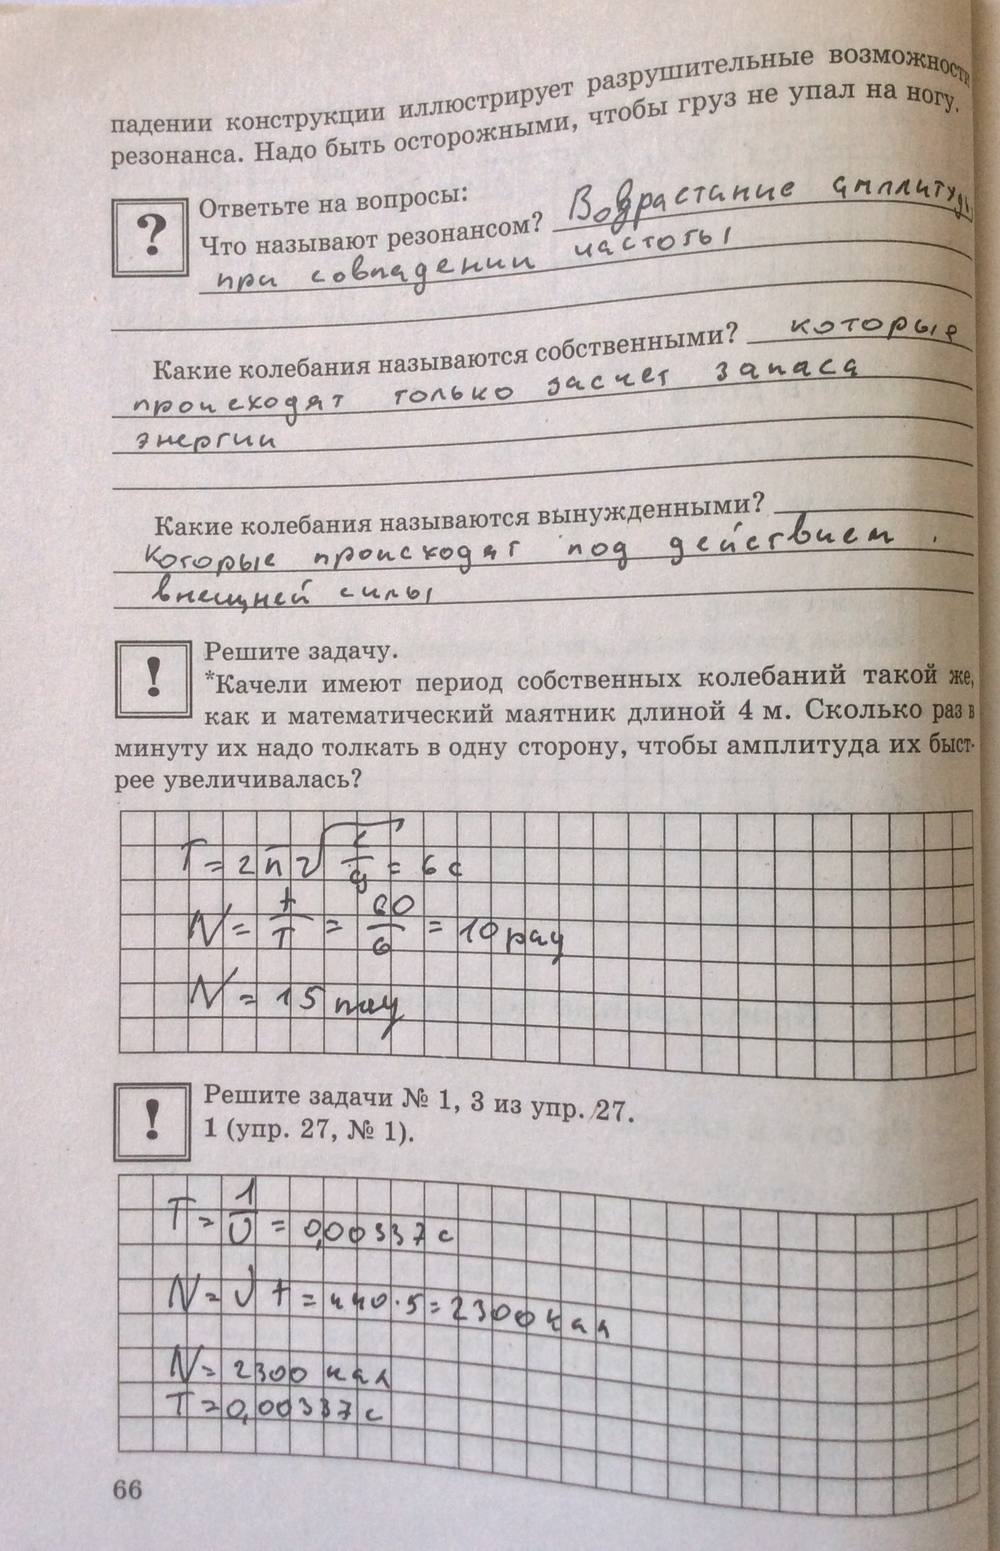 падении конструкции иллюстрирует разрушительные возможности
резонанса. Надо быть осторожными, чтобы груз не упал на ногу.
? Ответьте на вопросы:
Что называют резонансом? Возрастание амплитуды
при совпадении частоты
Какие колебания называются собственными? которые
происходят только засчет запаса
энергии
Какие колебания называются вынужденными?
Которые происходят под действием
внещней силы
! Решите задачу.
*Качели имеют период собственных колебаний такой же,
как и математический маятник длиной 4 м. Сколько раз в
минуту их надо толкать в одну сторону, чтобы амплитуда их быст-
рее увеличивалась?
T = 2π√ L/g = 6 с
N = t/T = 60/6 = 10 раз
N = 15 раз
! Решите задачи № 1, 3 из упр. 27.
1 (упр. 27, № 1).
T = 1/υ = 0,00337 с
N = υ t = 440·5 = 2300 кал
N = 2300 кал
T = 0,00337 с
66